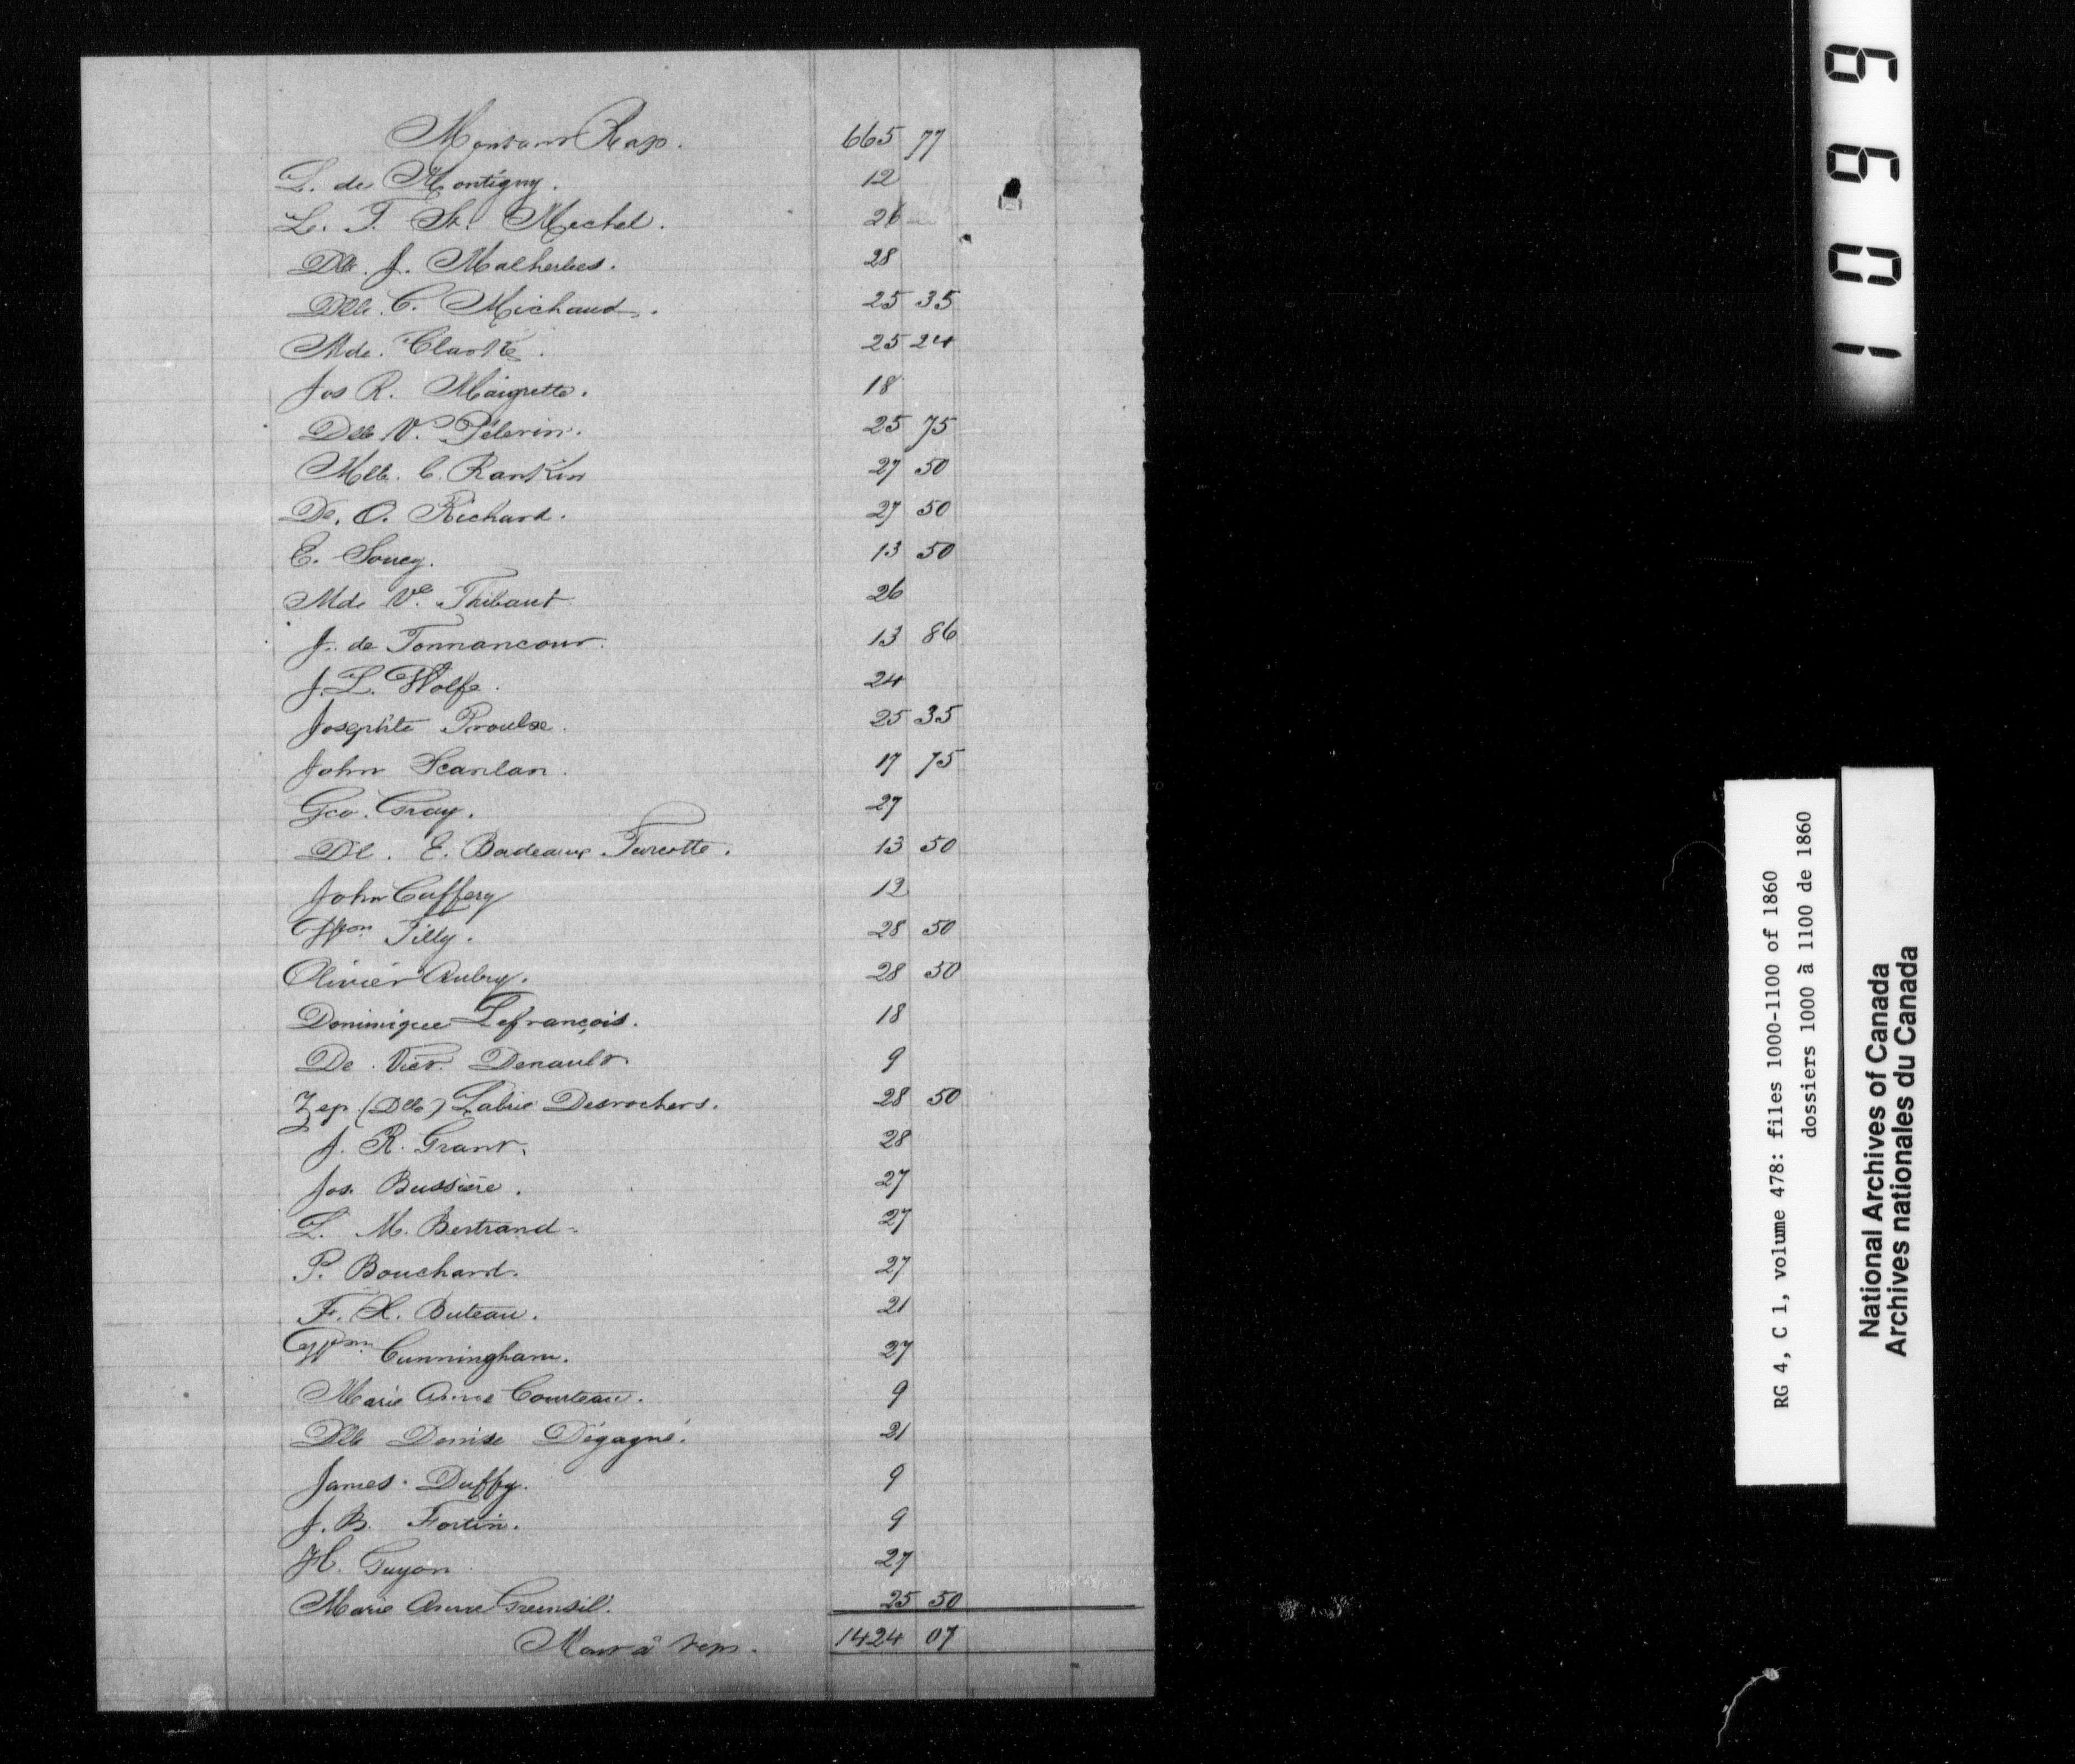 Montant Rap. 665 77
L. de Montigny. 12
L. T. St. Mechel. 26
Dlle. J. Malherbes. 28
Dlle. C. Michaud. 25 35
Mde. Clarke. 25 24
Jos R. Maigrette. 18
Dlle V. Pélerin. 25 75
Mlle. C. Rankin 27 50
De. O. Richard. 27 50
E. Soucy. 13 50
Mde Ve. Thibaut 26
J. de Tonnancour. 13 86
J. L. Wolfe. 24
Josephte Proulxe. 25 35
John Scanlan. 17 75
Geo. Gray. 27
Dl. E. Badeaux Turcotte. 13 50
John Caffery 12
Wm Tilly. 28 50
Olivier Aubry. 28 50
Dominique Lefrançois. 18
De. Vict. Denault 9
Zep (Dlle) Labrie Desrochers. 28 50
J. R. Grant. 28
Jos. Bussière. 27
L. M. Bertrand 27
P. Bouchard. 27
F. X. Buteau. 21
Wm Cunningham. 27
Marie Anne Courteau. 9
Dlle Denise Dégagné. 21
James Duffy. 9
J. B. Fortin. 9
H. Guyon 27
Marie Anne Greensil. 25 50
Mont à rep. 1424 07
1099
RG 4, C 1, volume 478: files 1000-1100 of 1860
dossiers 1000 à 1100 de 1860
National Archives of Canada
Archives nationales du Canada